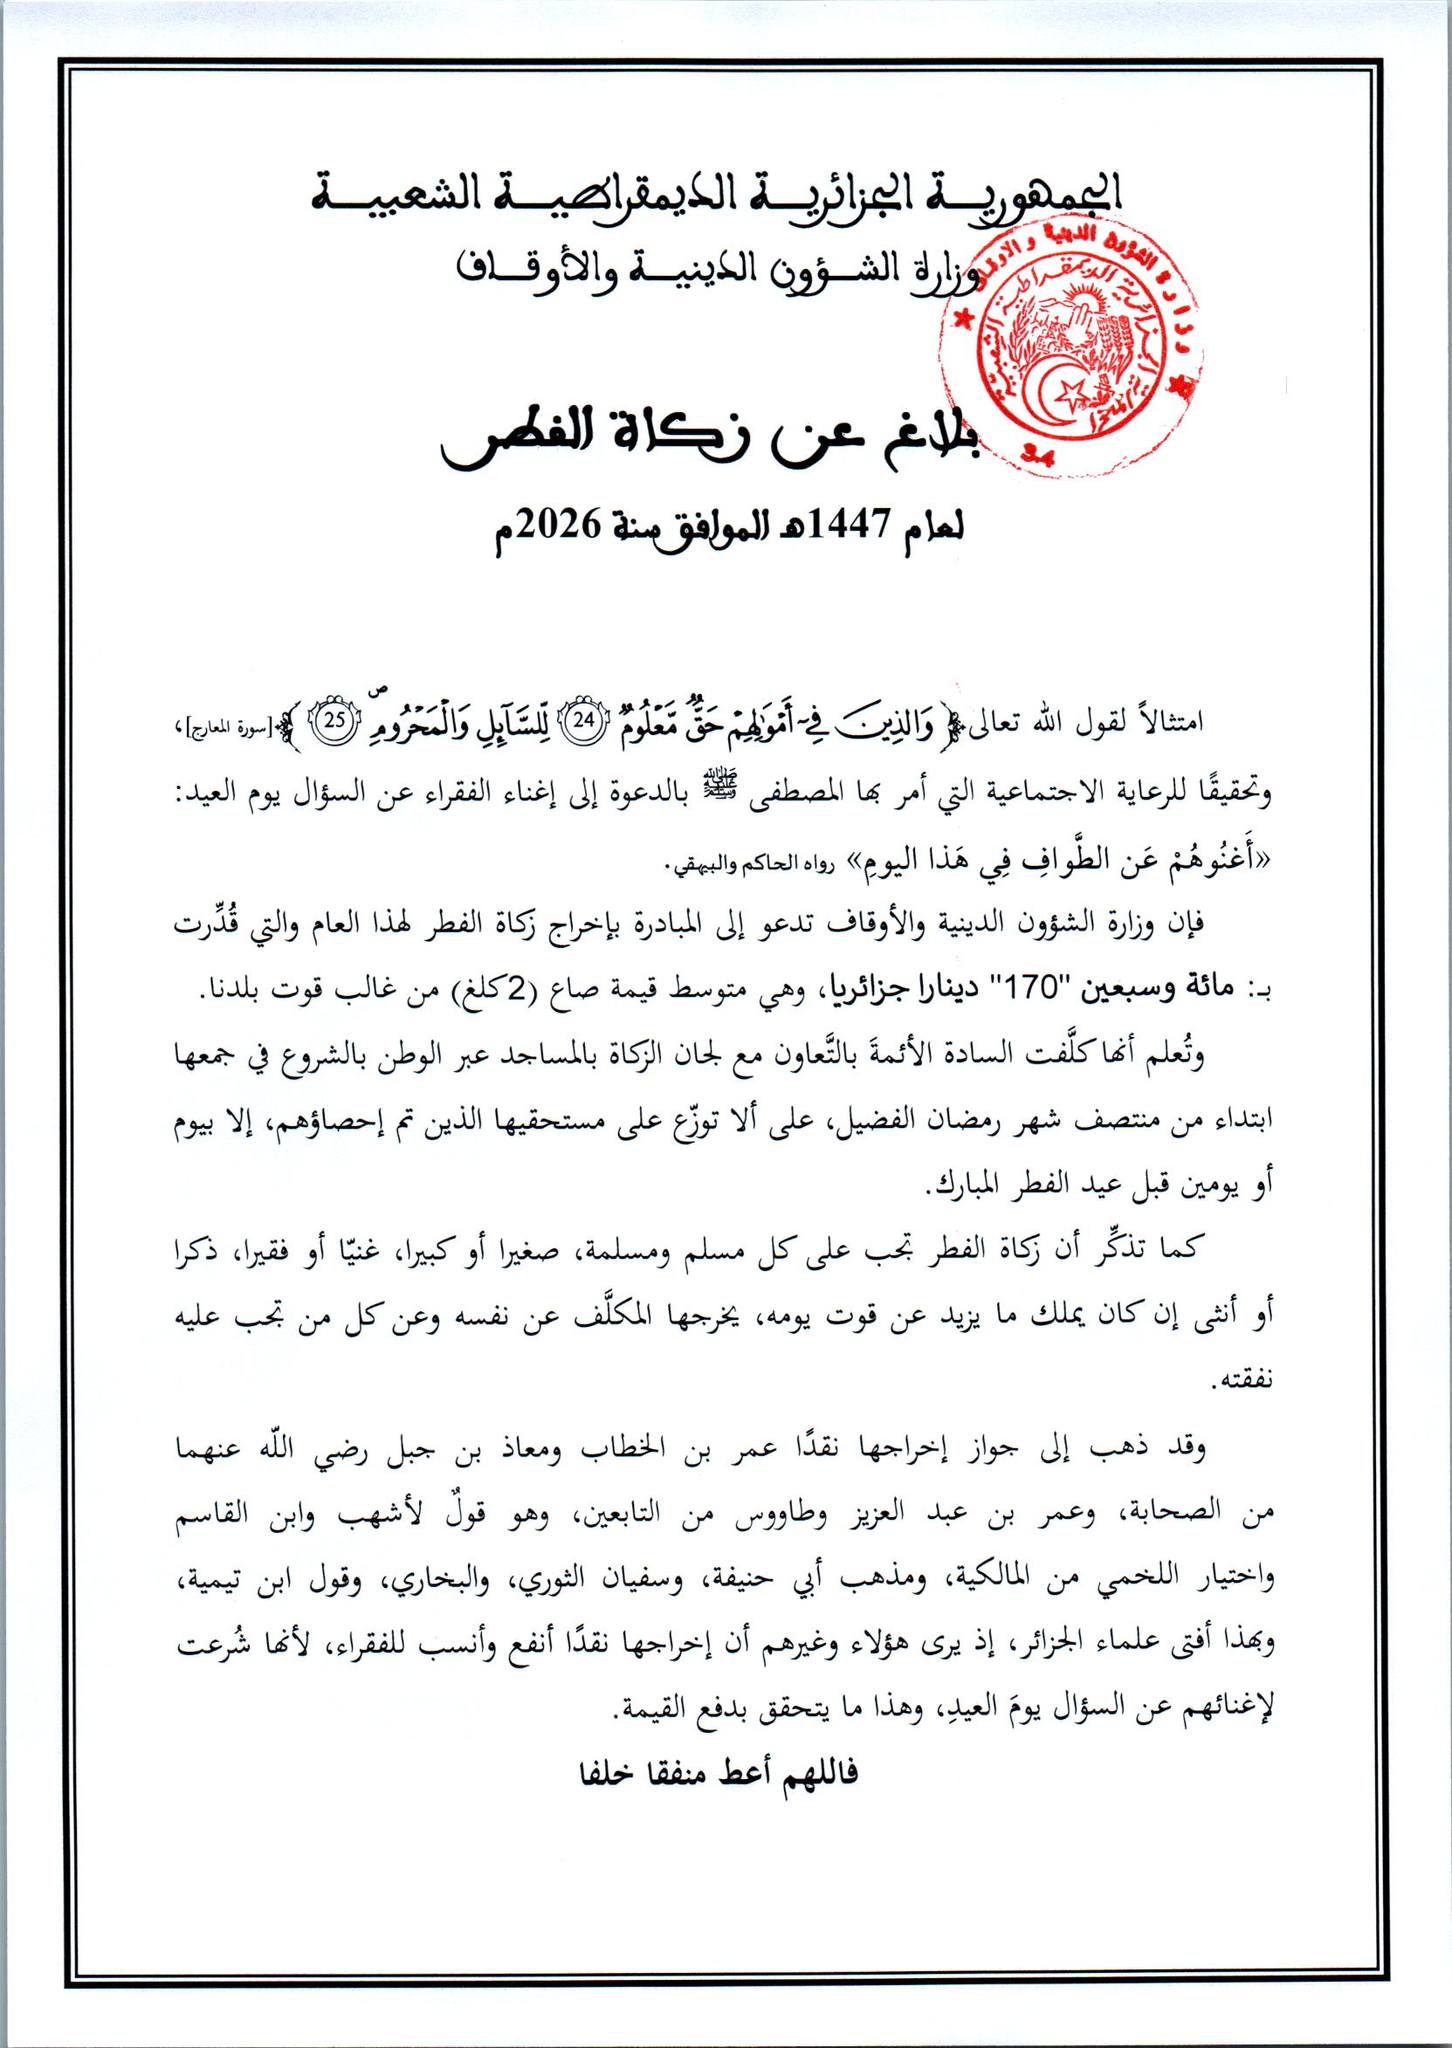 الجمهورية الجزائرية الديمقراطية الشعبية
وزارة الشؤون الدينية والأوقاف
وزارة الشؤون الدينية والأوقاف
الجمهورية الجزائرية الديمقراطية الشعبية
34
بلاغ عن زكاة الفطر
لعام 1447هـ الموافق سنة 2026م
امتثالاً لقول الله تعالى ﴿وَالذِينَ فِےٓ أَمْوَٰلِهِمْ حَقّٞ مَّعْلُومٞ 24 لِّلسَّآئِلِ وَالْمَحْرُومِۖ 25﴾ [سورة المعارج]،
وتحقيقًا للرعاية الاجتماعية التي أمر بها المصطفى ﷺ بالدعوة إلى إغناء الفقراء عن السؤال يوم العيد:
«أَغنُوهُمْ عَن الطَّوافِ فِي هَذا اليومِ» رواه الحاكم والبيهقي.
فإن وزارة الشؤون الدينية والأوقاف تدعو إلى المبادرة بإخراج زكاة الفطر لهذا العام والتي قُدِّرت
بـ: مائة وسبعين "170" دينارا جزائريا، وهي متوسط قيمة صاع (2كلغ) من غالب قوت بلدنا.
وتُعلم أنها كلَّفت السادة الأئمةَ بالتَّعاون مع لجان الزكاة بالمساجد عبر الوطن بالشروع في جمعها
ابتداء من منتصف شهر رمضان الفضيل، على ألا توزّع على مستحقيها الذين تم إحصاؤهم، إلا بيوم
أو يومين قبل عيد الفطر المبارك.
كما تذكِّر أن زكاة الفطر تجب على كل مسلم ومسلمة، صغيرا أو كبيرا، غنيّا أو فقيرا، ذكرا
أو أنثى إن كان يملك ما يزيد عن قوت يومه، يخرجها المكلَّف عن نفسه وعن كل من تجب عليه
نفقته.
وقد ذهب إلى جواز إخراجها نقدًا عمر بن الخطاب ومعاذ بن جبل رضي اللّه عنهما
من الصحابة، وعمر بن عبد العزيز وطاووس من التابعين، وهو قولٌ لأشهب وابن القاسم
واختيار اللخمي من المالكية، ومذهب أبي حنيفة، وسفيان الثوري، والبخاري، وقول ابن تيمية،
وبهذا أفتى علماء الجزائر، إذ يرى هؤلاء وغيرهم أن إخراجها نقدًا أنفع وأنسب للفقراء، لأنها شُرعت
لإغنائهم عن السؤال يومَ العيدِ، وهذا ما يتحقق بدفع القيمة.
فاللهم أعط منفقا خلفا